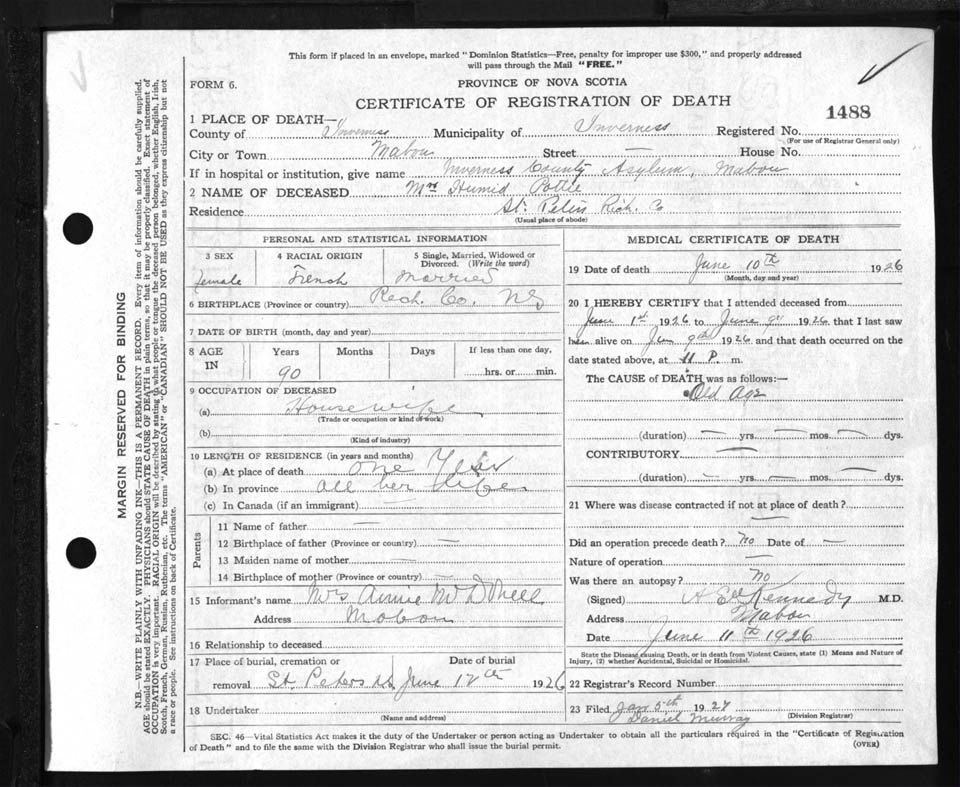 This form if placed in an envelope, marked "Dominion Statistics—Free, penalty for improper use $300," and properly addressed
will pass through the Mail "FREE."
FORM 6.
PROVINCE OF NOVA SCOTIA
CERTIFICATE OF REGISTRATION OF DEATH
1488
1 PLACE OF DEATH—
County of Inverness Municipality of Inverness Registered No.
(For use of Registrar General only)
City or Town Mabou Street — House No.
If in hospital or institution, give name Inverness County Asylum, Mabou
2 NAME OF DECEASED Mrs Pottie
Residence St. Peters Rich. Co
(Usual place of abode)
PERSONAL AND STATISTICAL INFORMATION
3 SEX 4 RACIAL ORIGIN 5 Single, Married, Widowed or
Divorced. (Write the word)
Female French Married
6 BIRTHPLACE (Province or country) Rich. Co. NS
7 DATE OF BIRTH (month, day and year)
8 AGE IN Years Months Days If less than one day,
90 hrs. or min.
9 OCCUPATION OF DECEASED
(a) Housewife
(Trade or occupation or kind of work)
(b)
(Kind of industry)
10 LENGTH OF RESIDENCE (in years and months)
(a) At place of death one Year
(b) In province all her life
(c) In Canada (if an immigrant) —
Parents
11 Name of father —
12 Birthplace of father (Province or country) —
13 Maiden name of mother —
14 Birthplace of mother (Province or country) —
15 Informant's name Mrs Annie
Address Mabou
16 Relationship to deceased
17 Place of burial, cremation or Date of burial
removal St. Peters June 12th 1926
18 Undertaker
(Name and address)
MEDICAL CERTIFICATE OF DEATH
19 Date of death June 10th 1926
(Month, day and year)
20 I HEREBY CERTIFY that I attended deceased from
June 1st 1926 to June 9th 1926 that I last saw
her alive on June 9th 1926 and that death occurred on the
date stated above, at 11 P. m.
The CAUSE of DEATH was as follows:—
Old Age
(duration) — yrs. — mos. — dys.
CONTRIBUTORY —
(duration) — yrs. — mos. — dys.
21 Where was disease contracted if not at place of death?
—
Did an operation precede death? No Date of —
Nature of operation —
Was there an autopsy? No
(Signed) Kennedy M.D.
Address Mabou
Date June 11th 1926
State the Disease causing Death, or in death from Violent Causes, state (1) Means and Nature of
Injury, (2) whether Accidental, Suicidal or Homicidal.
22 Registrar's Record Number
23 Filed Jan 5th 1927
Daniel Murray (Division Registrar)
SEC. 46—Vital Statistics Act makes it the duty of the Undertaker or person acting as Undertaker to obtain all the particulars required in the "Certificate of Registration
of Death" and to file the same with the Division Registrar who shall issue the burial permit.
(OVER)
MARGIN RESERVED FOR BINDING
N.B.—WRITE PLAINLY WITH UNFADING INK—THIS IS A PERMANENT RECORD. Every item of information should be carefully supplied.
AGE should be stated EXACTLY. PHYSICIANS should STATE CAUSE OF DEATH in plain terms, so that it may be properly classified. Exact statement of
OCCUPATION is very important. RACIAL ORIGIN will be described by stating to what people or tongue the deceased person belonged, whether English, Irish,
Scotch, French, German, Russian, Ruthenian, etc. The terms "AMERICAN" or "CANADIAN" SHOULD NOT BE USED as they express citizenship but not
a race or people. See instructions on back of Certificate.